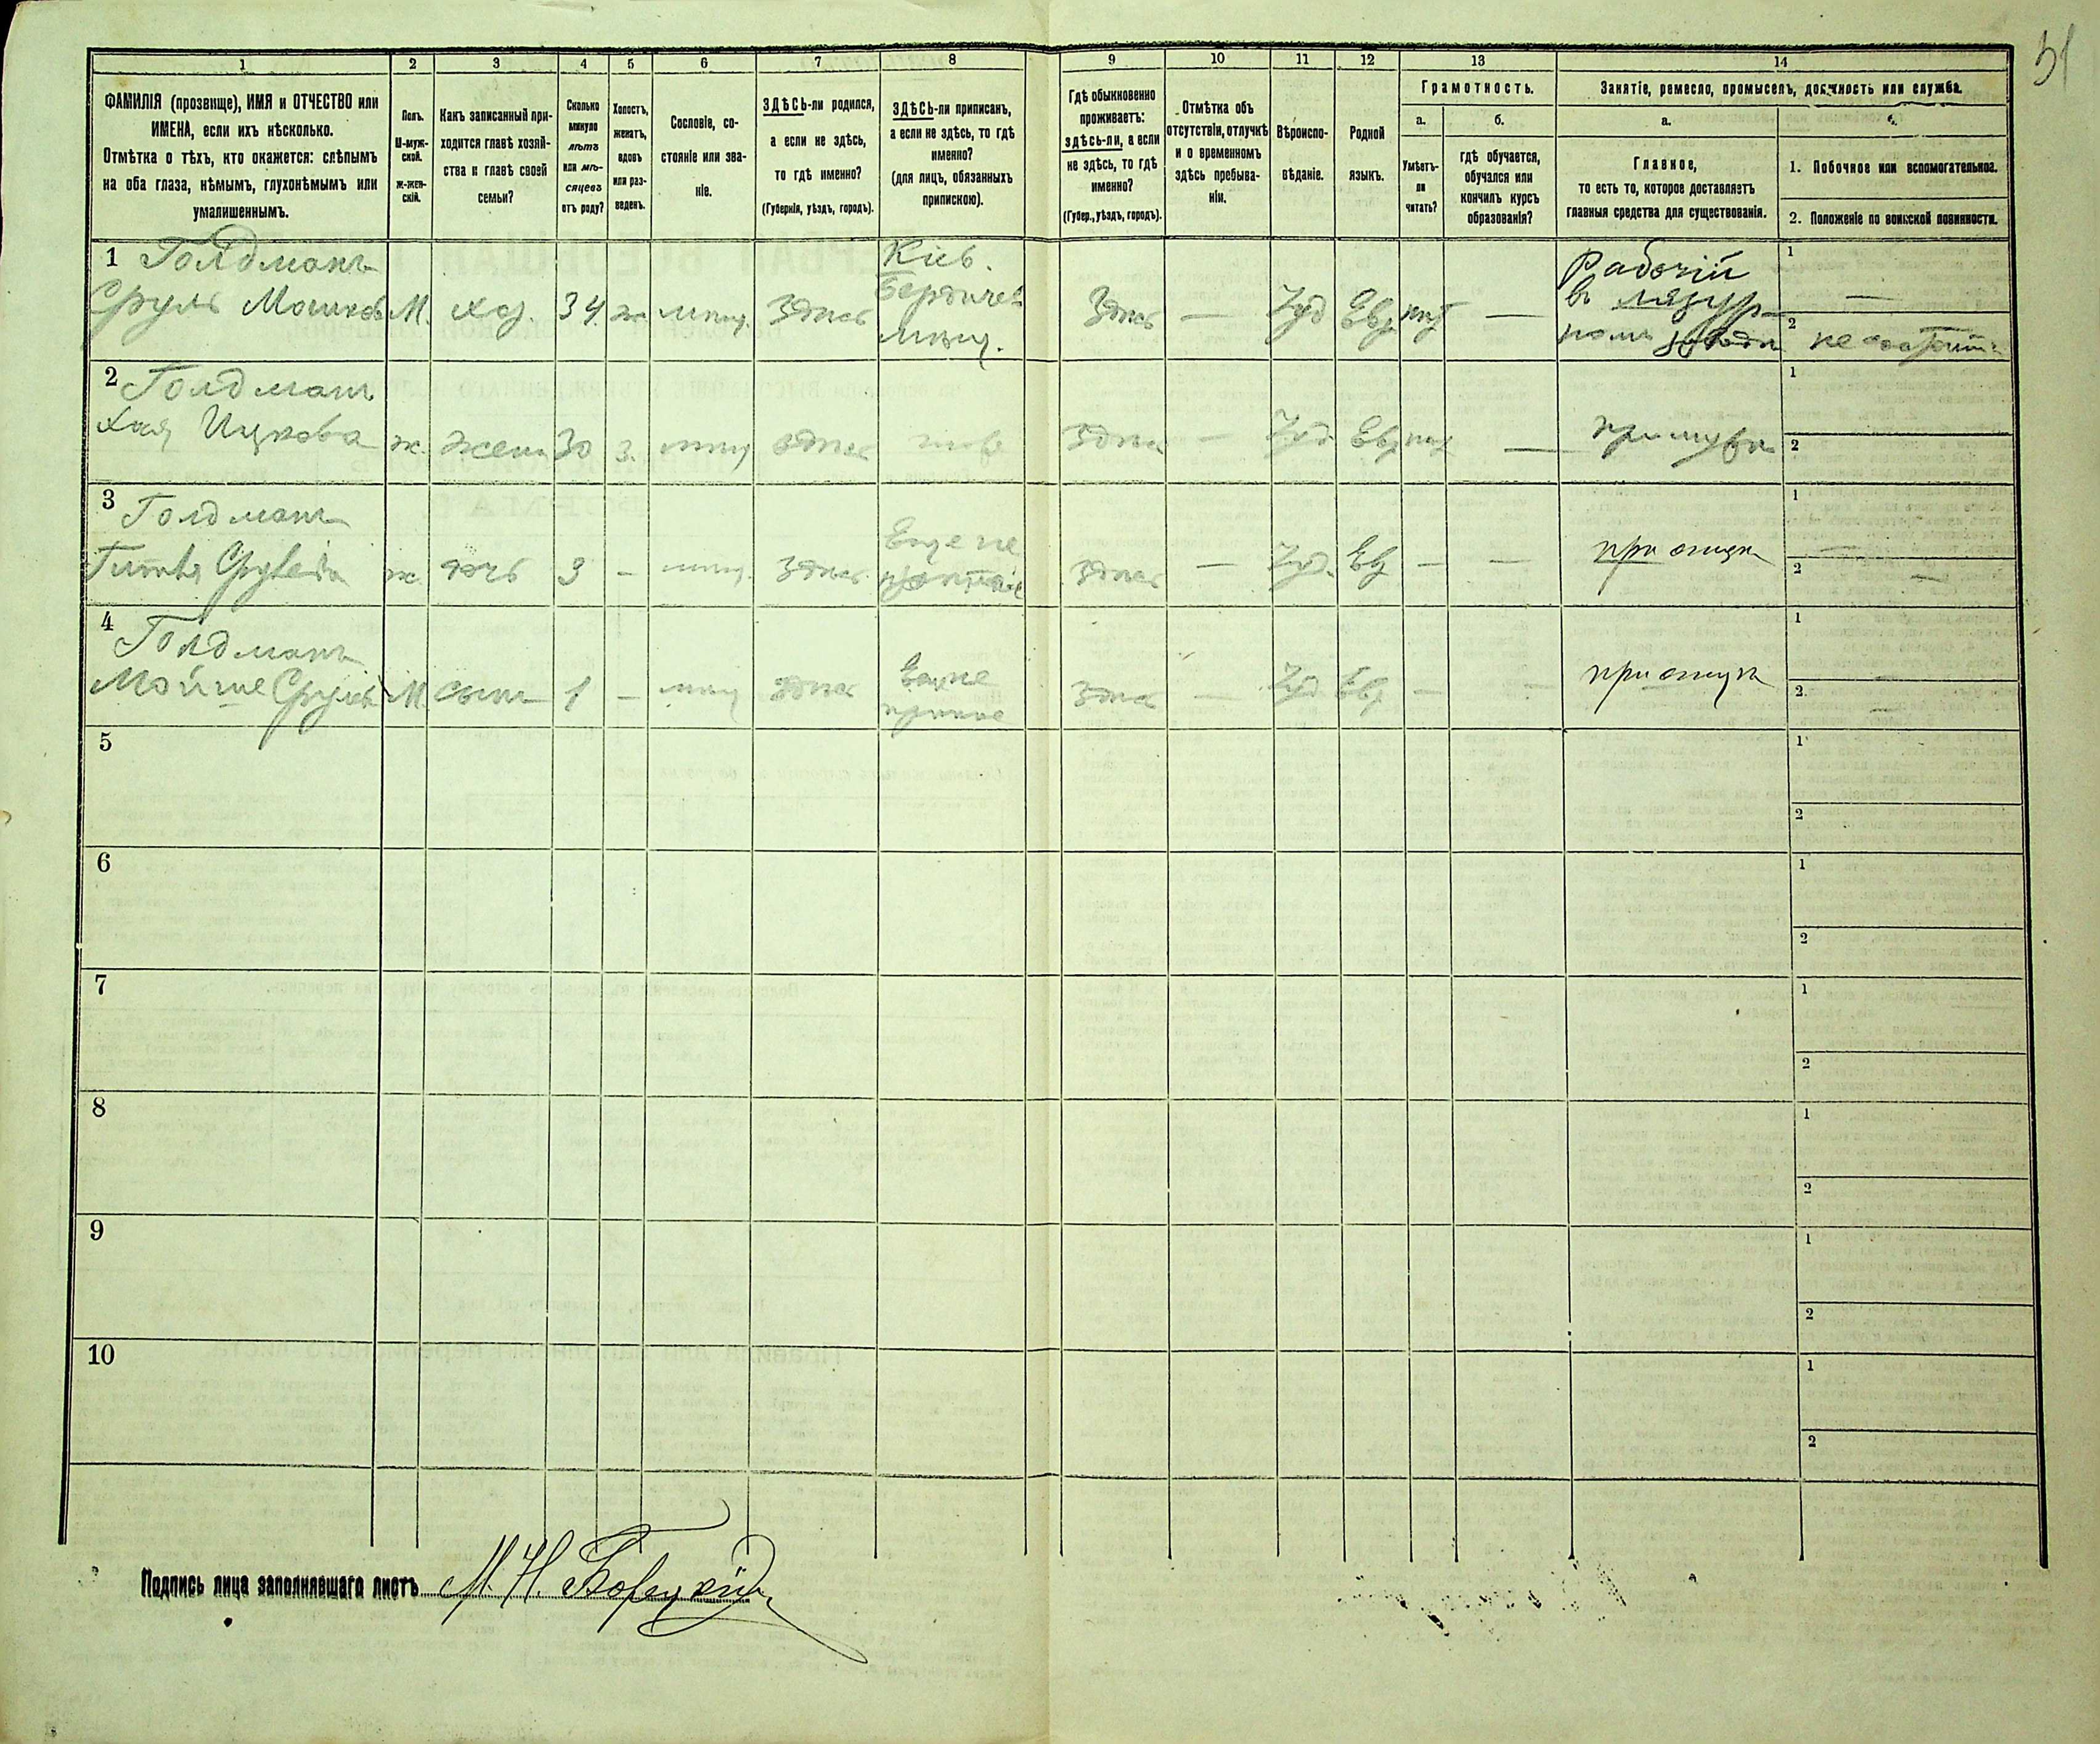 51
1 2 3 4 5 6 7 8 9 10 11 12 13 14
ФАМИЛІЯ (прозвище), ИМЯ и ОТЧЕСТВО или
ИМЕНА, если ихъ нѣсколько.
Отмѣтка о тѣхъ, кто окажется: слѣпымъ
на оба глаза, нѣмымъ, глухонѣмымъ или
умалишеннымъ.
Полъ.
М-муж-
ской.
Ж-жен-
скій.
Какъ записанный при-
ходится главѣ хозяй-
ства и главѣ своей
семьи?
Сколько
минуло
лѣтъ
или мѣ-
сяцевъ
отъ роду?
Холостъ,
женатъ,
вдовъ
или раз-
веденъ.
Сословіе, со-
стояніе или зва-
ніе.
ЗДѢСЬ-ли родился,
а если не здѣсь,
то гдѣ именно?
(Губернія, уѣздъ, городъ).
ЗДѢСЬ-ли приписанъ,
а если не здѣсь, то гдѣ
именно?
(для лицъ, обязанныхъ
припискою).
Гдѣ обыкновенно
проживаетъ:
здѣсь-ли, а если
не здѣсь, то гдѣ
именно?
(Губер., уѣздъ, городъ).
Отмѣтка объ
отсутствіи, отлучкѣ
и о временномъ
здѣсь пребыва-
ніи.
Вѣроиспо-
вѣданіе.
Родной
языкъ.
Грамотность.
а.
Умѣетъ-
ли
читать?
б.
гдѣ обучается,
обучался или
кончилъ курсъ
образованія?
Занятіе, ремесло, промыселъ, должность или служба.
а.
Главное,
то есть то, которое доставляетъ
главныя средства для существованія.
б.
1. Побочное или вспомогательное.
2. Положеніе по воинской повинности.
1 Голдманъ
Сруль Мошковъ М. хоз. 34 ж. мѣщ. Здѣсь
Кіев.
Бердичев
мѣщ.
Здѣсь — Іуд Евр нѣт —
Рабочій
въ
1 —
2
2 Голдманъ
Хая Ицкова ж. жена 30 з. мѣщ здѣсь
Здѣсь — Іуд. Евр —
1
2
3 Голдманъ
ж. дочь 3 — мѣщ. Здѣсь
Еще не
Здѣсь — Іуд. Ев — —
при отцѣ
1 —
2 —
4 Голдманъ
Мойше Срулев М. сынъ 1 — мѣщ здѣсь
Еще не
Здѣсь — Іуд Евр — -
при отцѣ
1 —
2. —
5
1
2
6
1
2
7
1
2
8
1
2
9
1
2
10
1
2
Подпись лица заполнявшаго листъ М. Н.